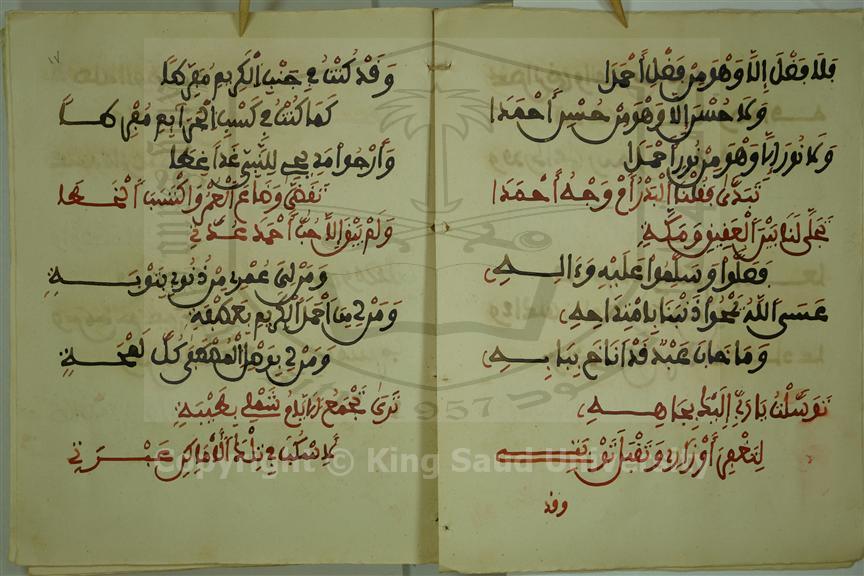 فلا فضل إلا وهو من فضل أحمدا
ولا حسن إلا وهو من حسن أحمدا
ولا نور إلا وهو من نور أحمدا
تبدى فقلنا البدر أم وجه أحمدا
تجلى لنا بين العقيق ومكة
فصلوا وسلموا عليه وءاله
عسى الله يمحوا ذنبنا بامتداحه
وما خاب عبد قد أناخ ببابه
توسلت يا ربي إليك بجاهه
لتغفر أوزاري وتقبل توبتي
وقد
١٧
وقد كنت في جنب الكريم مفرطا
كما كنت في كسب الجرايم مفرطا
وأرجوا مديحي للنبي
تقضى وضاع العمر واكتسب الخطا
ولم يبق إلا حب أحمد عدتي
ومن لي عمري من ذنوبي بتوبة
ومن لي من أحمد الكريم بعطفة
ومن لي بوصل المصطفى كل لمحة
ترى تجمع الأيام شملي بطيبة
لأسكب في تلك الأماكن عبرتي
Copyright © King Saud University
1957